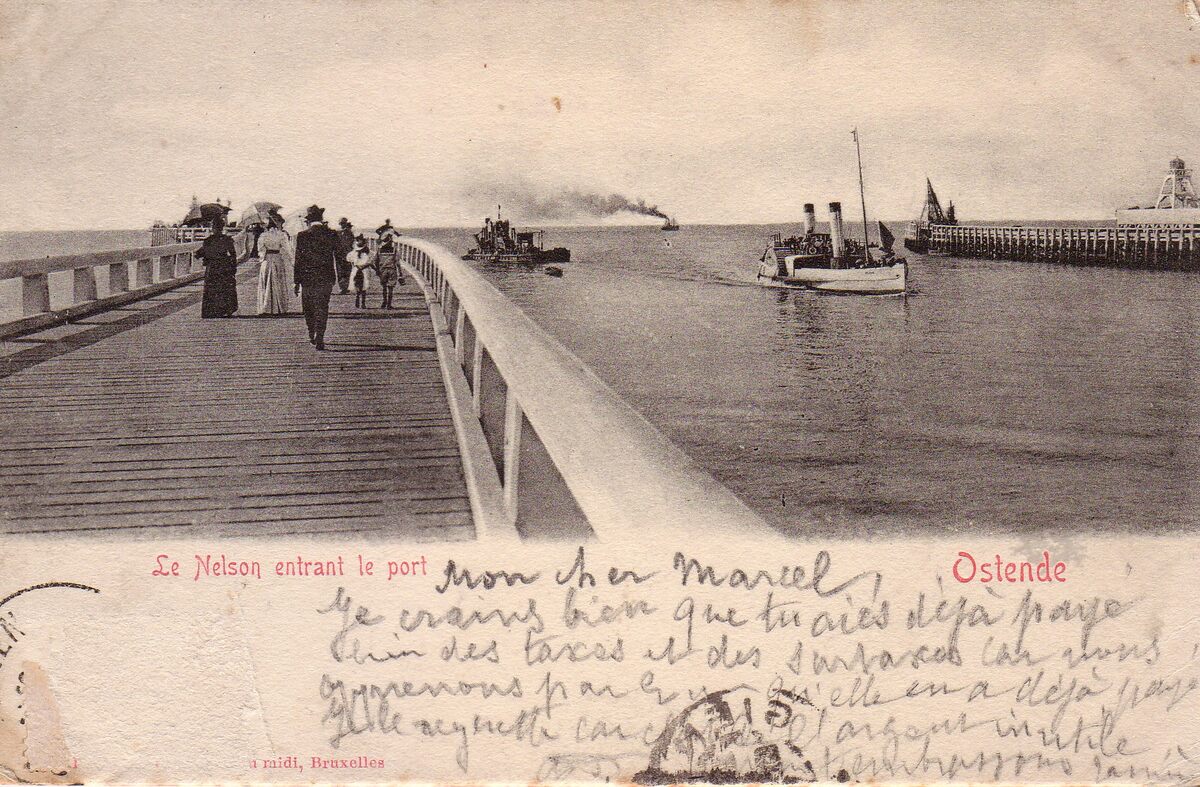 Le Nelson entrant le port
Ostende
Mon cher Marcel,
Je crains bien que tu aies déjà payé
bien des taxes et des surtaxes car nous
apprenons par qu'elle en a déjà payé
Je le regrette car l'argent inutile
embrassons
midi, Bruxelles